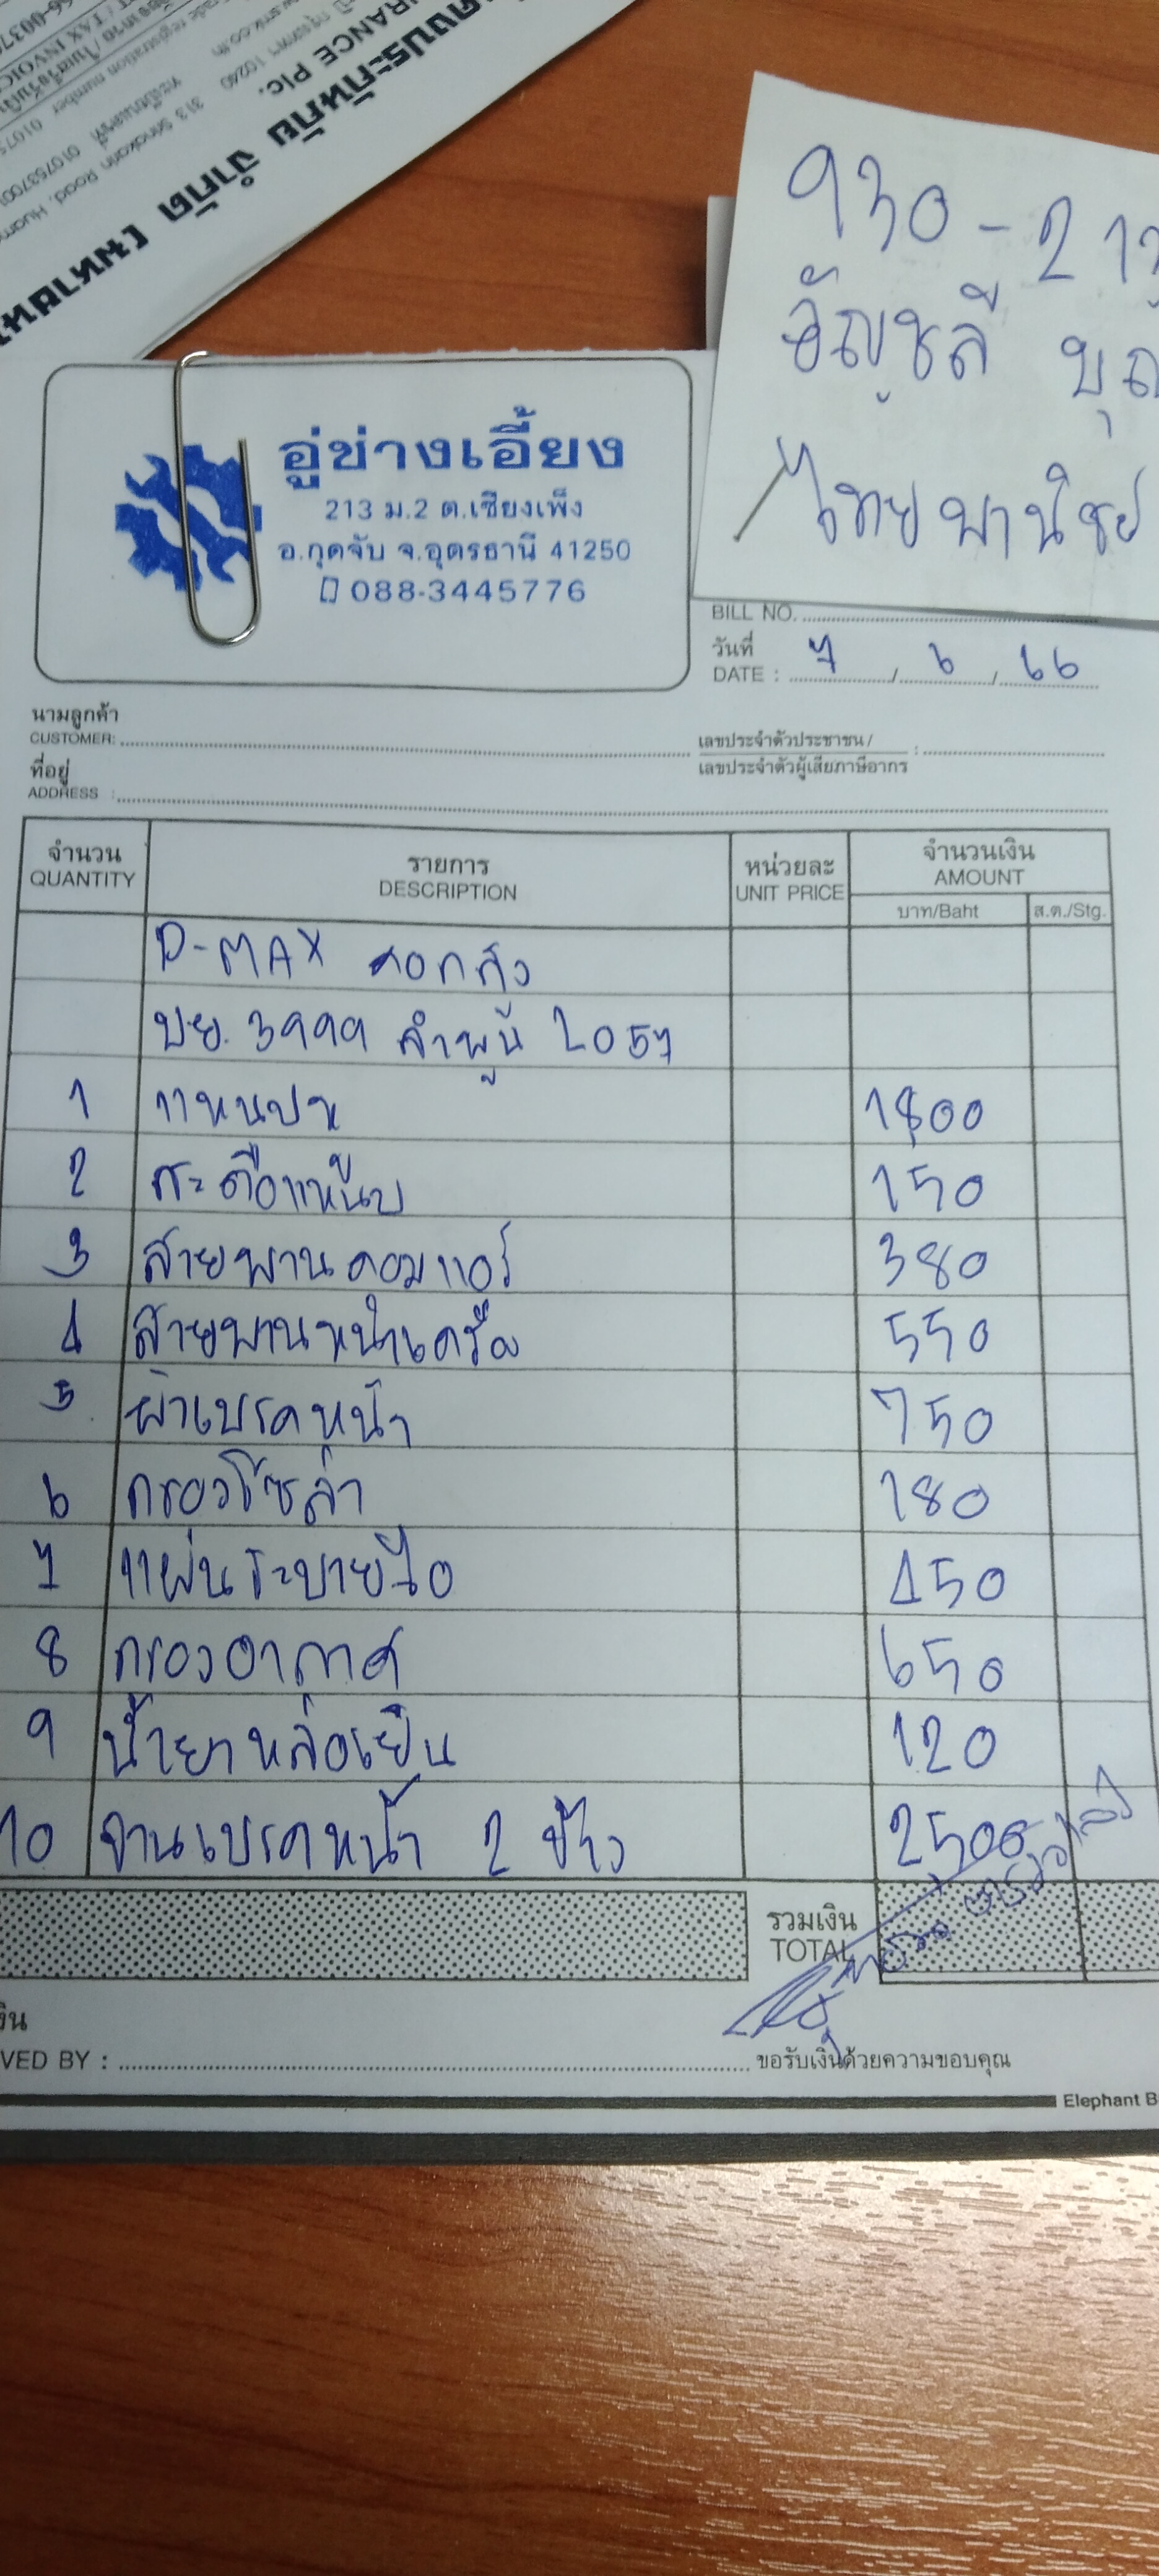 คงประกันภัย จำกัด (มหาชน)
RANCE Plc.
313 Srinakarin Road, Huam
10240
อู่ช่างเอี้ยง
213 ม.2 ต.เชียงเพ็ง
อ.กุดจับ จ.อุดรธานี 41250
088-3445776
930-2
อัญชลี
ไทยพานิชย์
BILL NO.
วันที่
DATE : 7 / 6 / 66
นามลูกค้า
CUSTOMER:
เลขประจำตัวประชาชน /
เลขประจำตัวผู้เสียภาษีอากร
ที่อยู่
ADDRESS :
จำนวน รายการ หน่วยละ จำนวนเงิน
QUANTITY DESCRIPTION UNIT PRICE AMOUNT
บาท/Baht ส.ต./Stg.
D-MAX
บย. 3999 ลำพูน 2057
1 แหนบ 1800
2 สะดือแหนบ 150
3 สายพานคอมแอร์ 380
4 สายพานหน้าเครื่อง 550
5 ผ้าเบรคหน้า 750
6 กรองโซล่า 180
7 แผ่นระบายไอ 450
8 กรองอากาศ 650
9 น้ำยาหล่อเย็น 120
10 จานเบรคหน้า 2 ข้าง 2500
รวมเงิน
TOTAL
งิน
VED BY :
ขอรับเงินด้วยความขอบคุณ
Elephant B